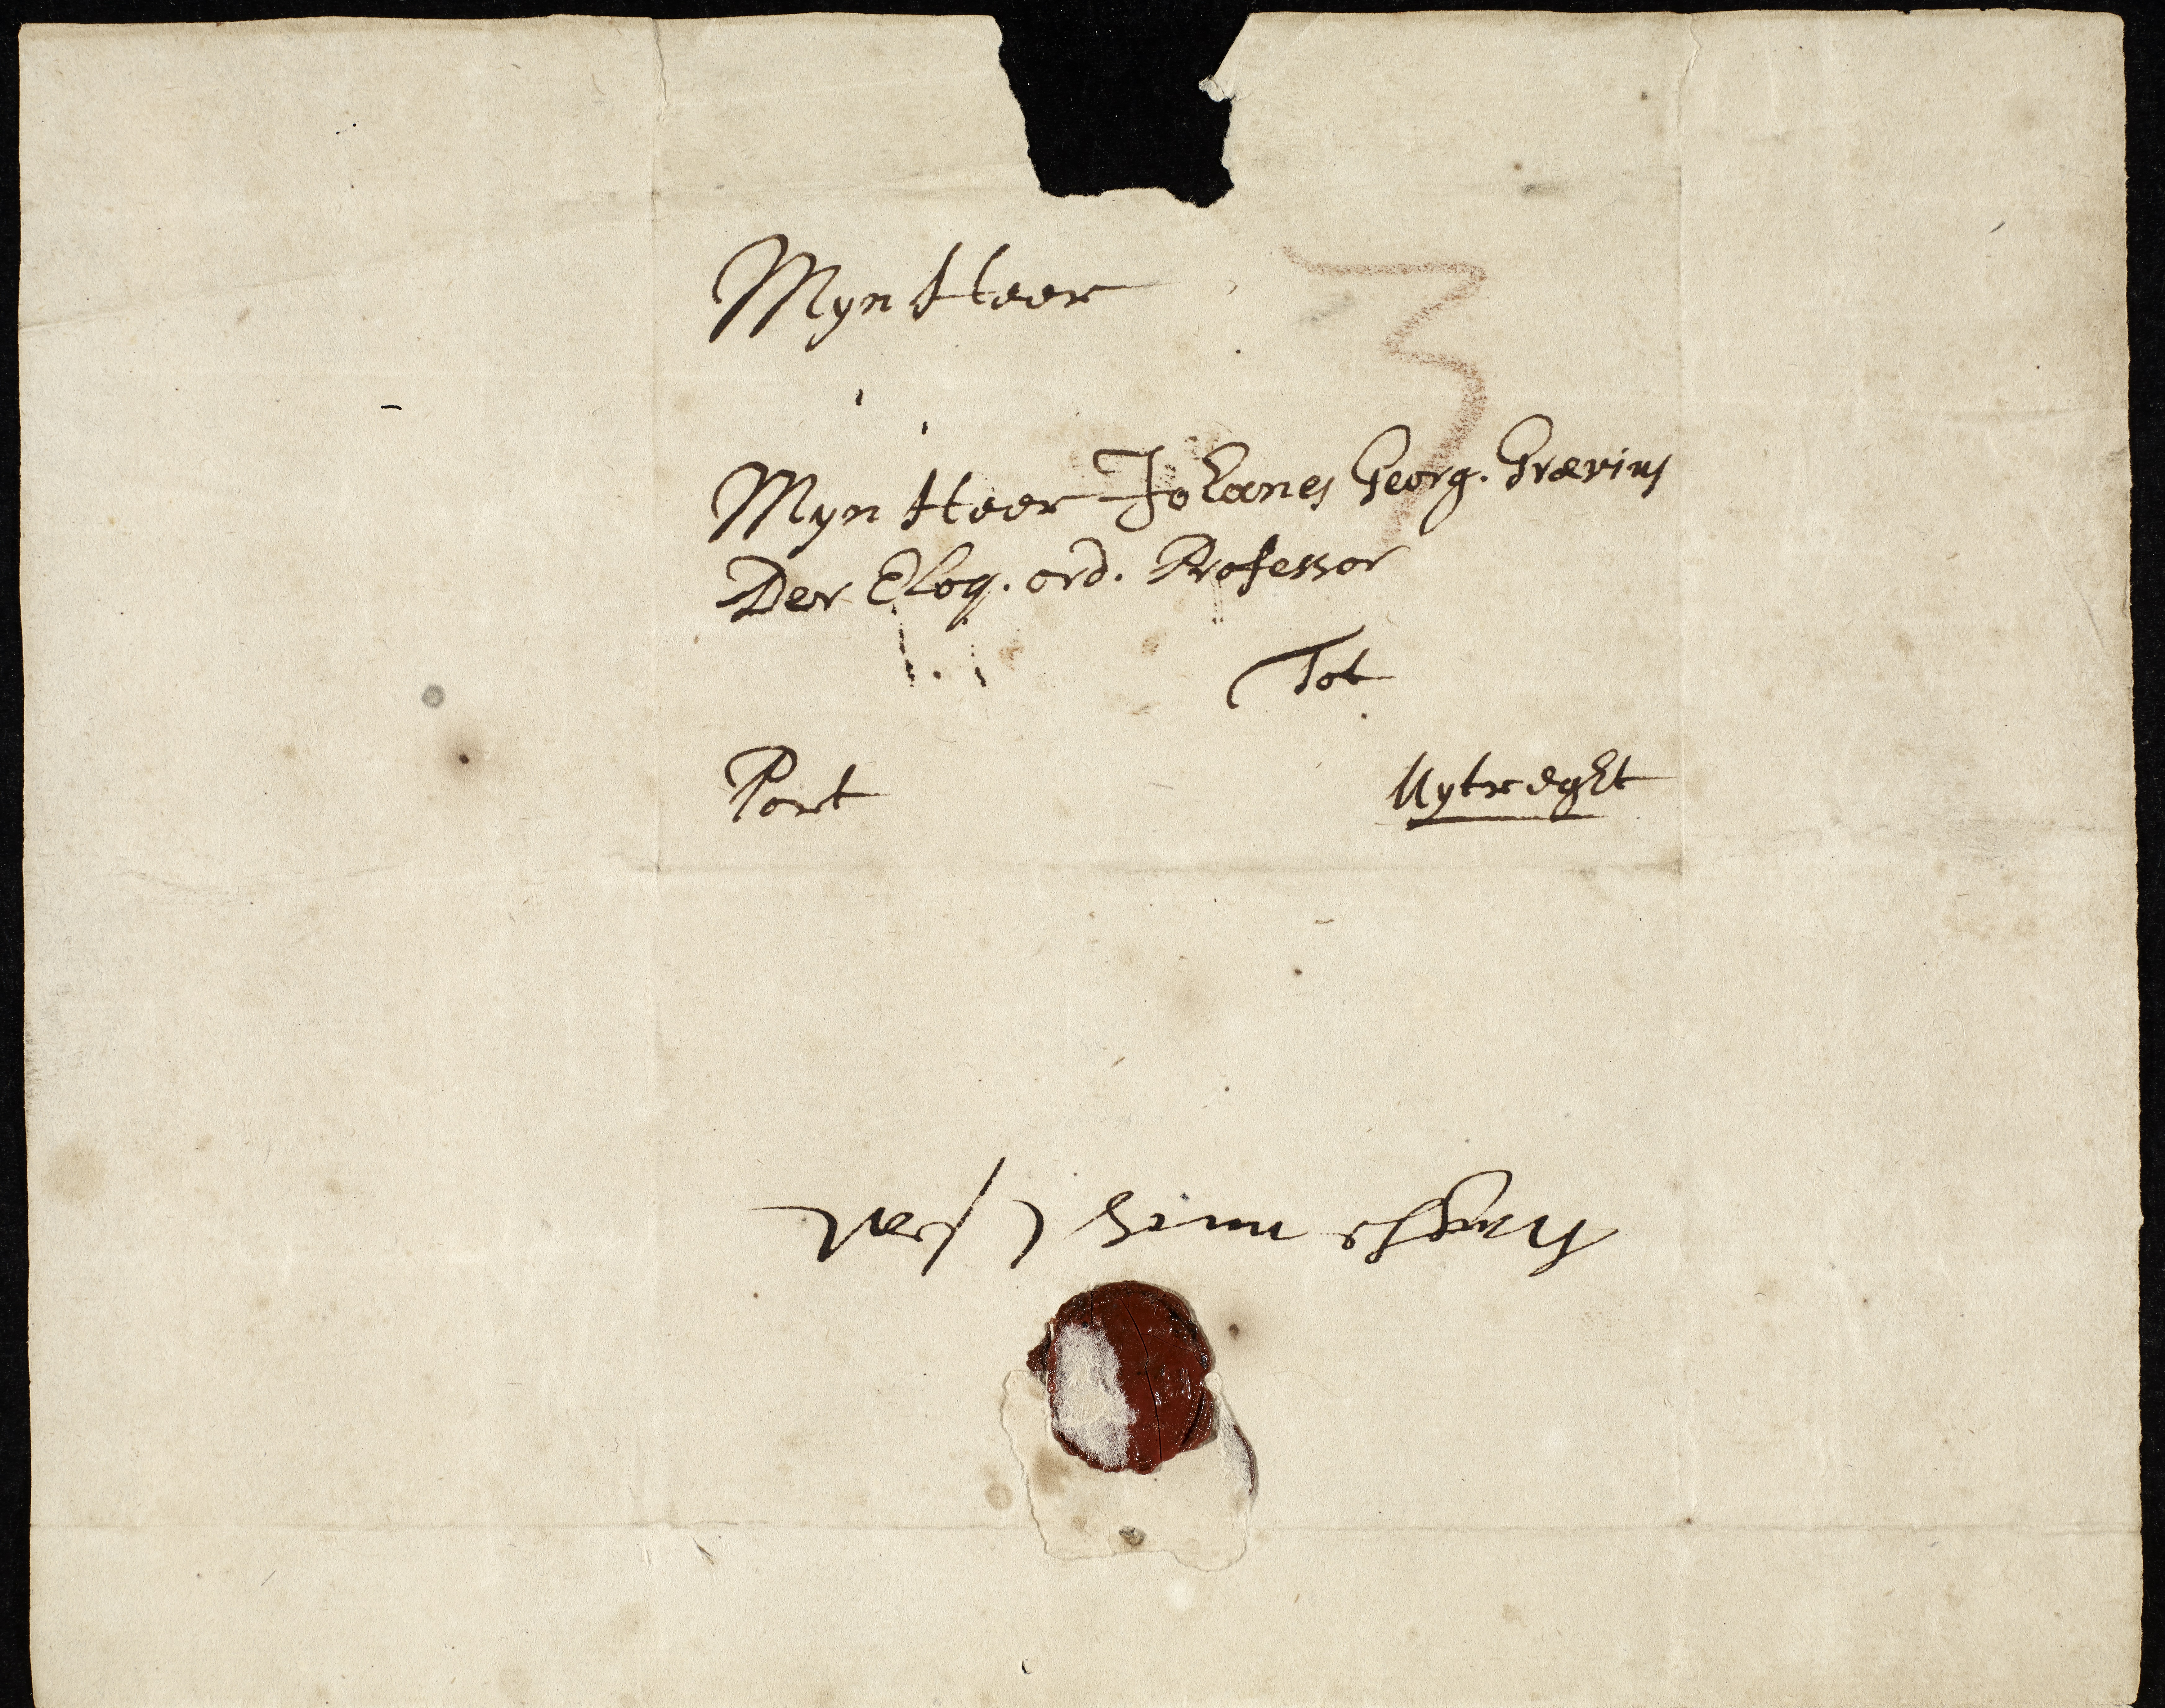 Myn Heer
3
Myn Heer Johanes Georg. Grævius
Der Eloq. ord. Professor
Tot
Port
Uytreght